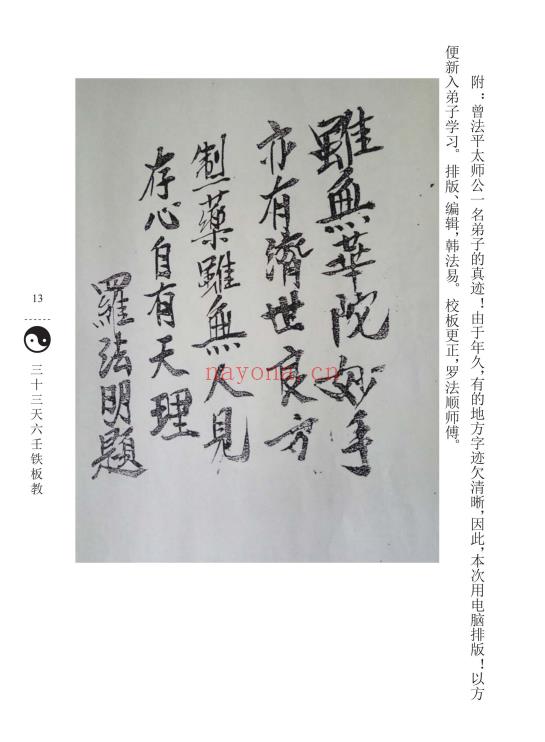 附：曾法平太师公一名弟子的真迹！由于年久，有的地方字迹欠清晰，因此，本次用电脑排版！以方
便新入弟子学习。 排版、编辑，韩法易。 校板更正，罗法顺师傅。
雖無華院妙手
亦有濟世良方
制藥雖無人見
存心自有天理
羅法明題
nayona.cn
13
三十三天六壬铁板教